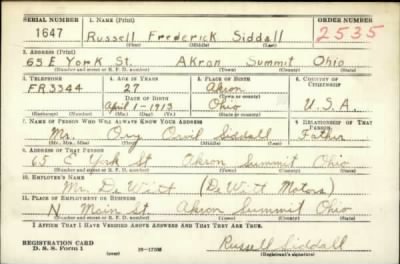 SERIAL NUMBER 1. NAME (Print) ORDER NUMBER
1647 Russell Frederick Siddall 2535
(First) (Middle) (Last)
2. ADDRESS (Print)
65 E York St. Akron Summit Ohio
(Number and street or R. F. D. number) (Town) (County) (State)
3. TELEPHONE 4. AGE IN YEARS 5. PLACE OF BIRTH 6. COUNTRY OF CITIZENSHIP
FR 3344 27 Akron
DATE OF BIRTH (Town or county)
April 1-1913 Ohio U.S.A.
(Exchange) (Number) (Mo.) (Day) (Yr.) (State or country)
7. NAME OF PERSON WHO WILL ALWAYS KNOW YOUR ADDRESS 8. RELATIONSHIP OF THAT PERSON
Mr. Orvil Siddall Father
(Mr., Mrs., Miss) (First) (Middle) (Last)
9. ADDRESS OF THAT PERSON
65 E York St Akron Summit Ohio
(Number and street or R. F. D. number) (Town) (County) (State)
10. EMPLOYER'S NAME
Mr. De Witt (De Witt Motors)
11. PLACE OF EMPLOYMENT OR BUSINESS
N Main St Akron Summit Ohio
(Number and street or R. F. D. number) (Town) (County) (State)
I AFFIRM THAT I HAVE VERIFIED ABOVE ANSWERS AND THAT THEY ARE TRUE.
REGISTRATION CARD
D. S. S. Form 1 Russell Siddall
(Registrant's signature)